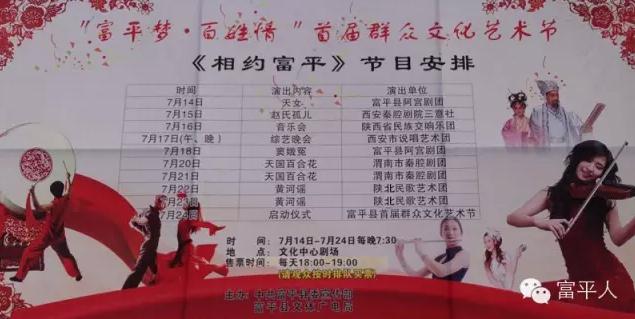 "富平梦·百姓情"首届群众文化艺术节
《相约富平》节目安排
时间 演出内容 演出单位
7月14日 天女 富平县阿宫剧团
7月15日 赵氏孤儿 西安秦腔剧院三意社
7月16日 音乐会 陕西省民族交响乐团
7月17日(午、晚) 综艺晚会 西安市说唱艺术团
7月18日 窦娥冤 富平县阿宫剧团
7月20日 天国百合花 渭南市秦腔剧团
7月21日 天国百合花 渭南市秦腔剧团
7月22日 黄河谣 陕北民歌艺术团
7月23日 黄河谣 陕北民歌艺术团
7月24日 启动仪式 富平县首届群众文化艺术节
时 间：7月14日-7月24日每晚7:30
地 点：文化中心剧场
售票时间：每天18:00-19:00
(请观众按时排队买票)
主办：中共富平县委宣传部
富平县文体广电局
富平人